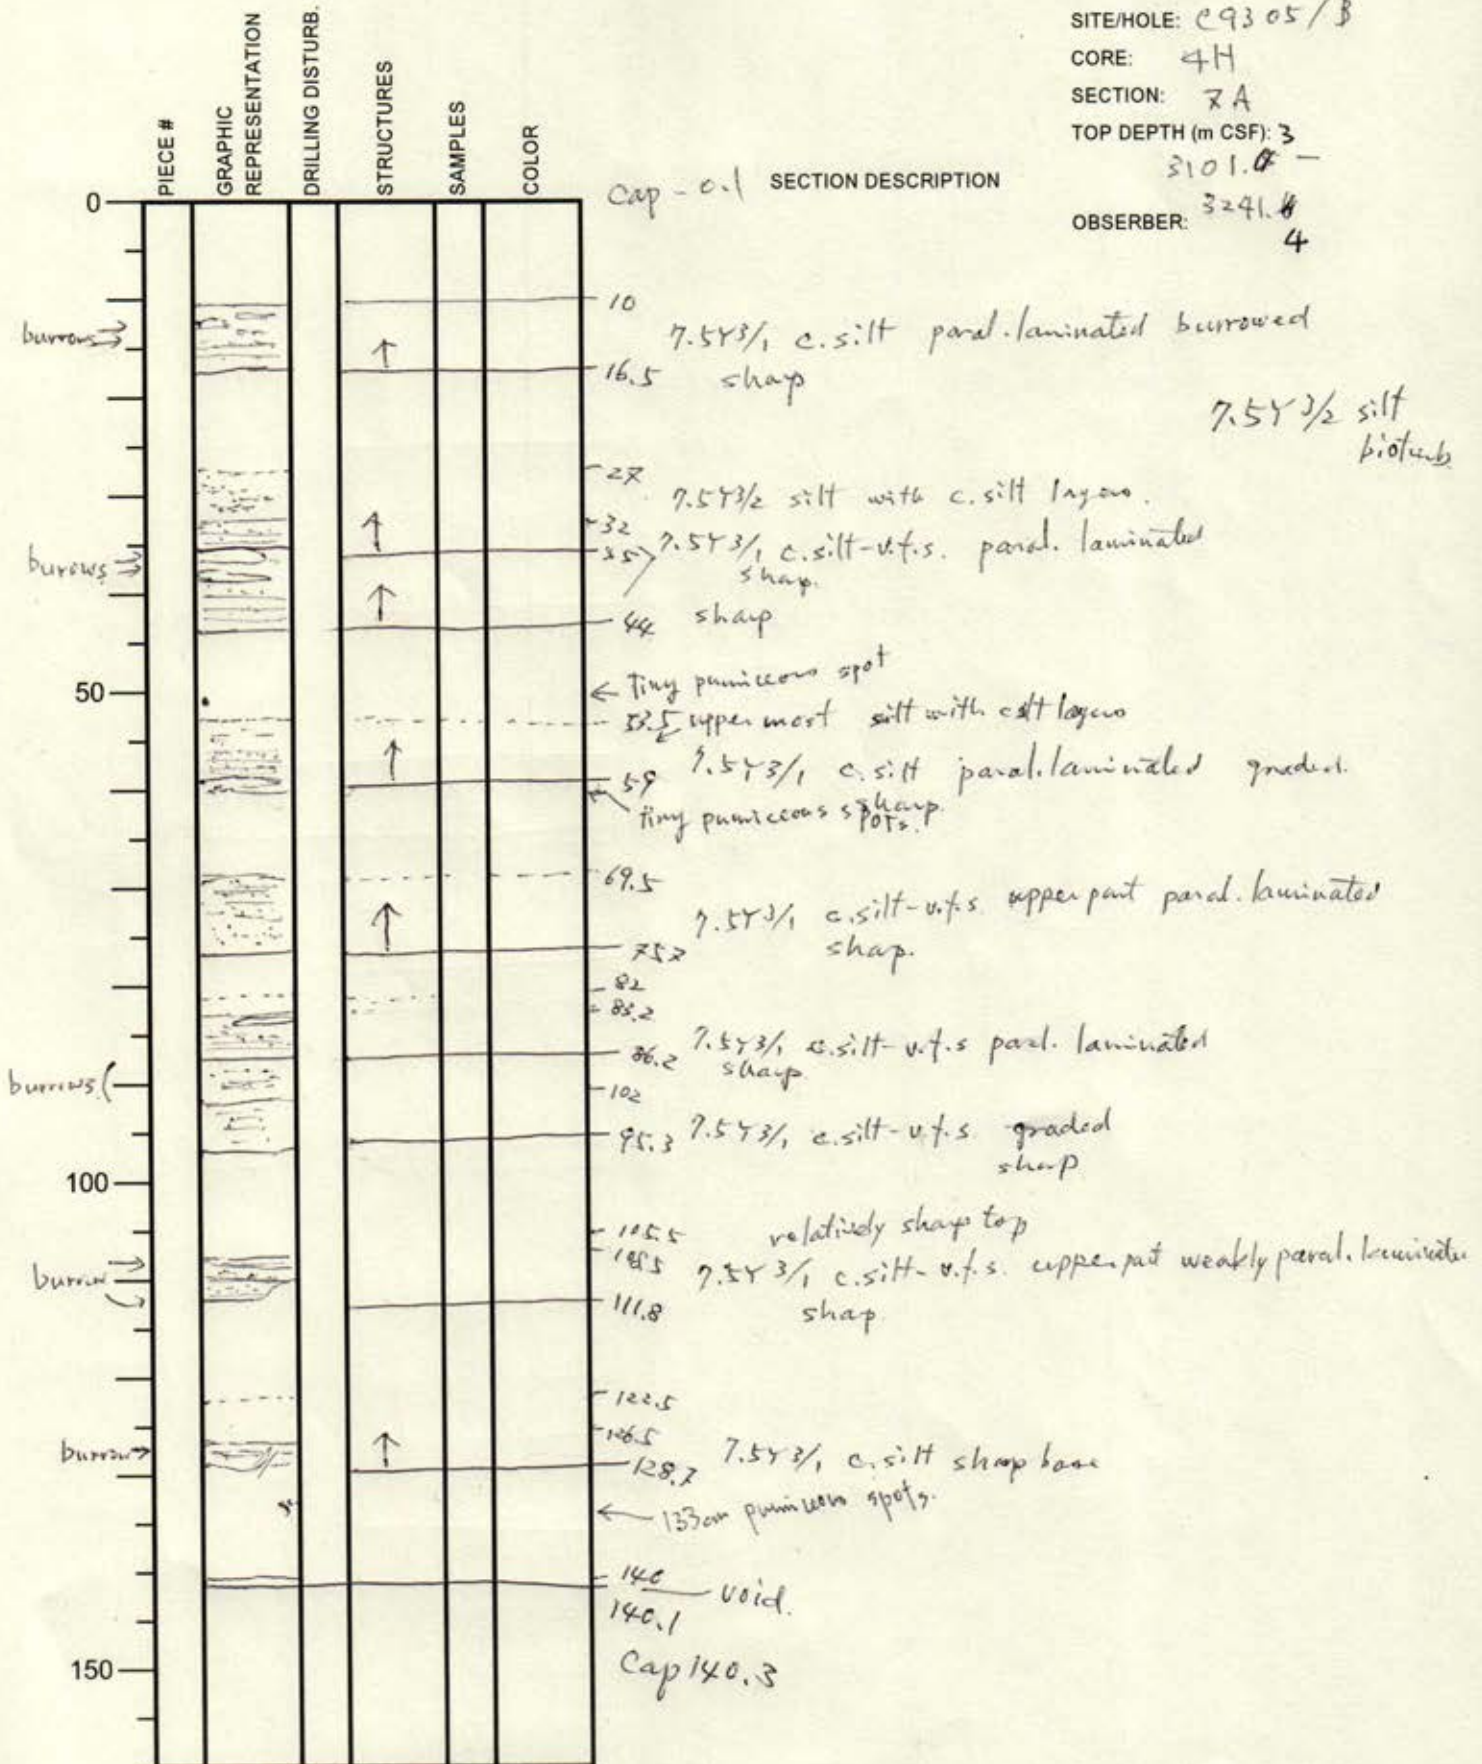 SITE/HOLE: C9305/B
CORE: 4H
SECTION: 7A
TOP DEPTH (m CSF): 3
3101. -
OBSERBER: 3241.
4
PIECE #
GRAPHIC REPRESENTATION
DRILLING DISTURB.
STRUCTURES
SAMPLES
COLOR
cap - 0.1 SECTION DESCRIPTION
0
10
burrows 7.5Y3/1 c.silt paral.laminated burrowed
16.5 sharp
7.5Y 3/2 silt
bioturb
27
7.5Y3/2 silt with c.silt layers.
32
35 7.5Y3/1 c.silt-v.f.s. paral. laminated
burows sharp.
44 sharp
50 tiny pumiceous spot
53.5 uppermost silt with csilt layers
59 7.5Y3/1 c.silt paral.laminated graded.
sharp.
tiny pumiceous spots.
69.5
7.5Y3/1 c.silt-v.f.s. upper part paral. laminated
75.7 sharp.
82
83.2
86.2 7.5Y3/1 c.silt-v.f.s paral. laminated
sharp.
burrows 102
95.3 7.5Y3/1 c.silt-v.f.s. graded
sharp
100
105.5 relatively sharp top
7.5Y 3/1 c.silt-v.f.s. upper part weakly paral. laminated
burrow
111.8 sharp
122.5
126.5
burrow 7.5Y3/1 c.silt sharp base
128.7
133cm pumiceous spots.
140
void.
140.1
150 Cap 140.3